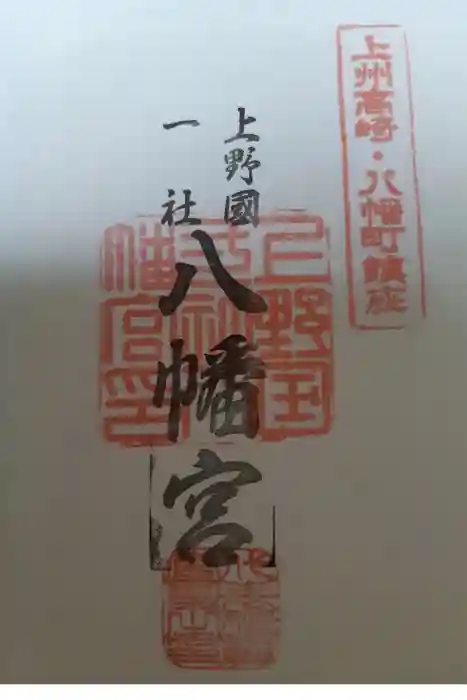 上州高崎・八幡町鎮座
上野國
一社
八幡宮
上野国一社八幡宮印